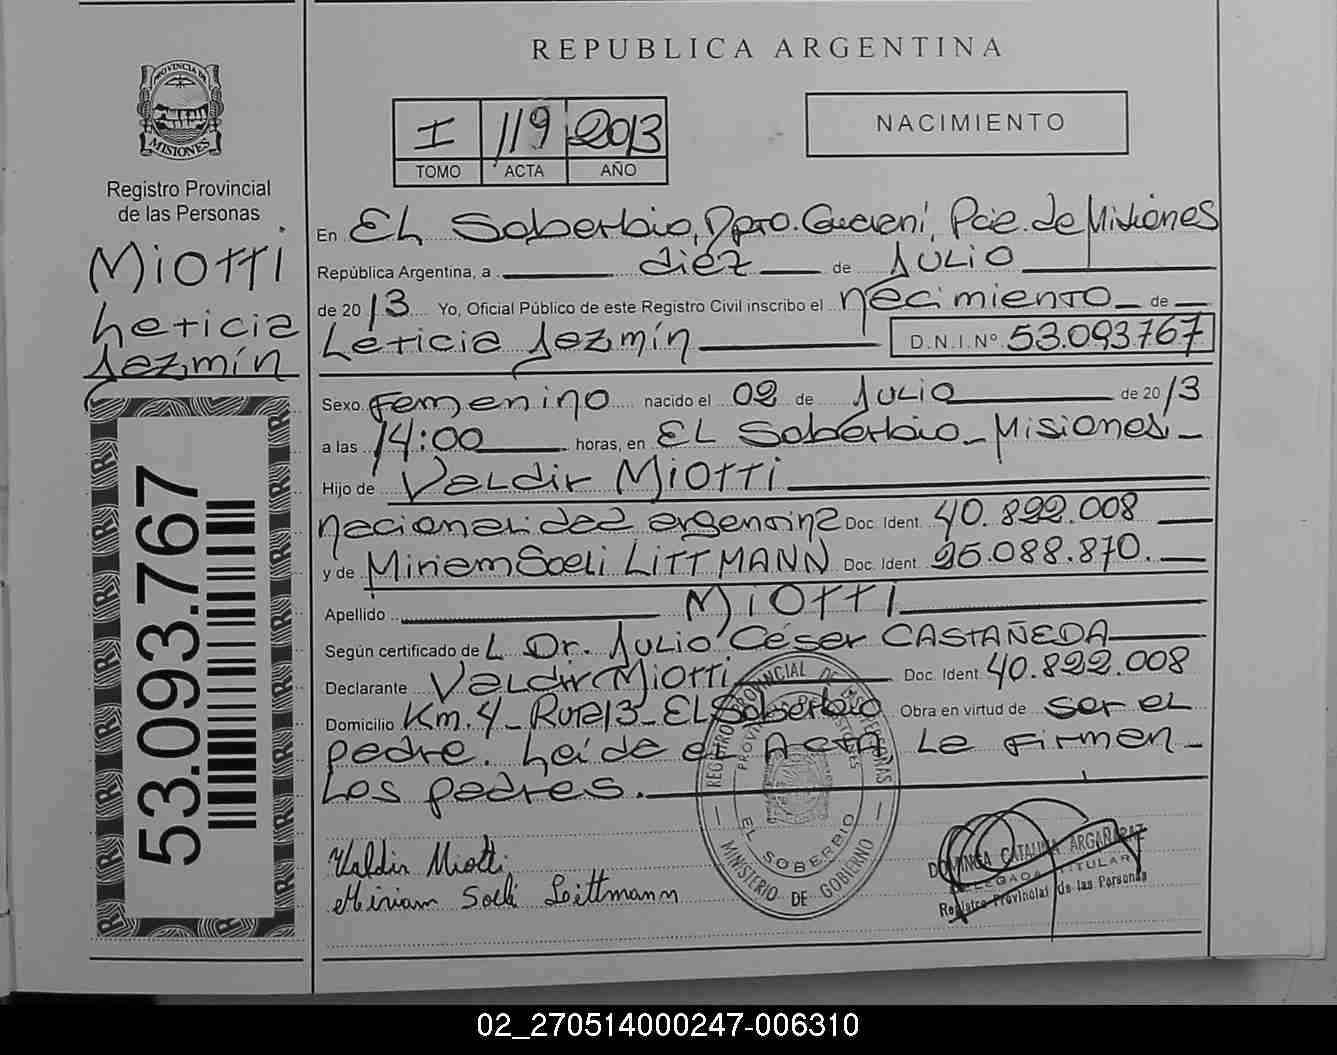 REPUBLICA ARGENTINA
PROVINCIA DE
MISIONES
Registro Provincial
de las Personas
Miotti
Leticia
Jazmín
53.093.767
I 119 2013
TOMO ACTA AÑO
NACIMIENTO
En EL Soberbio, Dpto. Guaraní, Pcia. de Misiones
República Argentina, a diez de JULIO
de 2013 Yo, Oficial Público de este Registro Civil inscribo el Nacimiento de
Leticia Jazmín D.N.I.Nº 53.093.767
Sexo Femenino nacido el 02 de JULIO de 2013
a las 14:00 horas, en EL Soberbio - Misiones -
Hijo de Valdir Miotti
nacionalidad argentina Doc. Ident. 40.822.008
y de Miriam Soeli LITTMANN Doc. Ident. 95.088.870.
Apellido Miotti
Según certificado de L Dr. JULIO César CASTAÑEDA
Declarante Valdir Miotti Doc. Ident. 40.822.008
Domicilio Km. 4 - Ruta 13 - EL Soberbio Obra en virtud de ser el
padre. Leída el Acta La Firman -
Los padres.
Valdir Miotti
Miriam Soeli Littmann
REGISTRO PROVINCIAL DE LAS PERSONAS
EL SOBERBIO
MINISTERIO DE GOBIERNO
DOMINGA CATALINA ARGAÑARAZ
DELEGADA TITULAR
Registro Provincial de las Personas
02_270514000247-006310